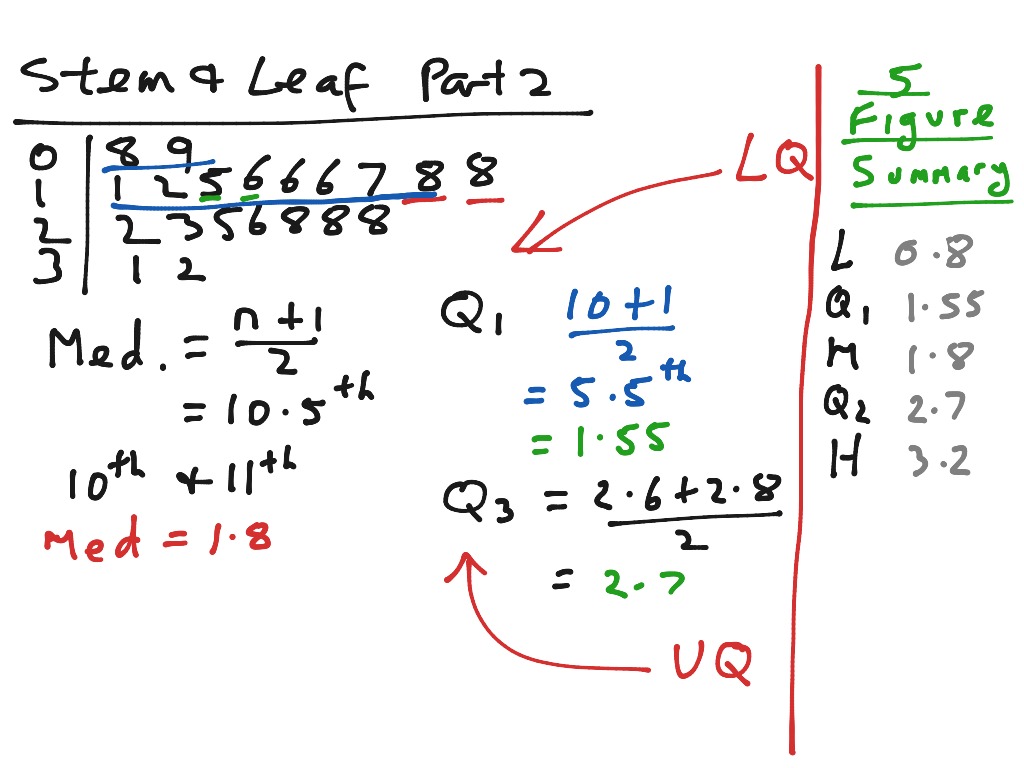 Stem & Leaf Part 2
0 | 8 9
1 | 1 2 5 6 6 6 7 8 8
2 | 2 3 5 6 8 8 8
3 | 1 2
Med. = n+1 / 2
= 10.5th
10th + 11th
Med = 1.8
LQ
Q1 10+1 / 2
= 5.5th
= 1.55
Q3 = 2.6+2.8 / 2
= 2.7
UQ
5
Figure
Summary
L 0.8
Q1 1.55
M 1.8
Q2 2.7
H 3.2